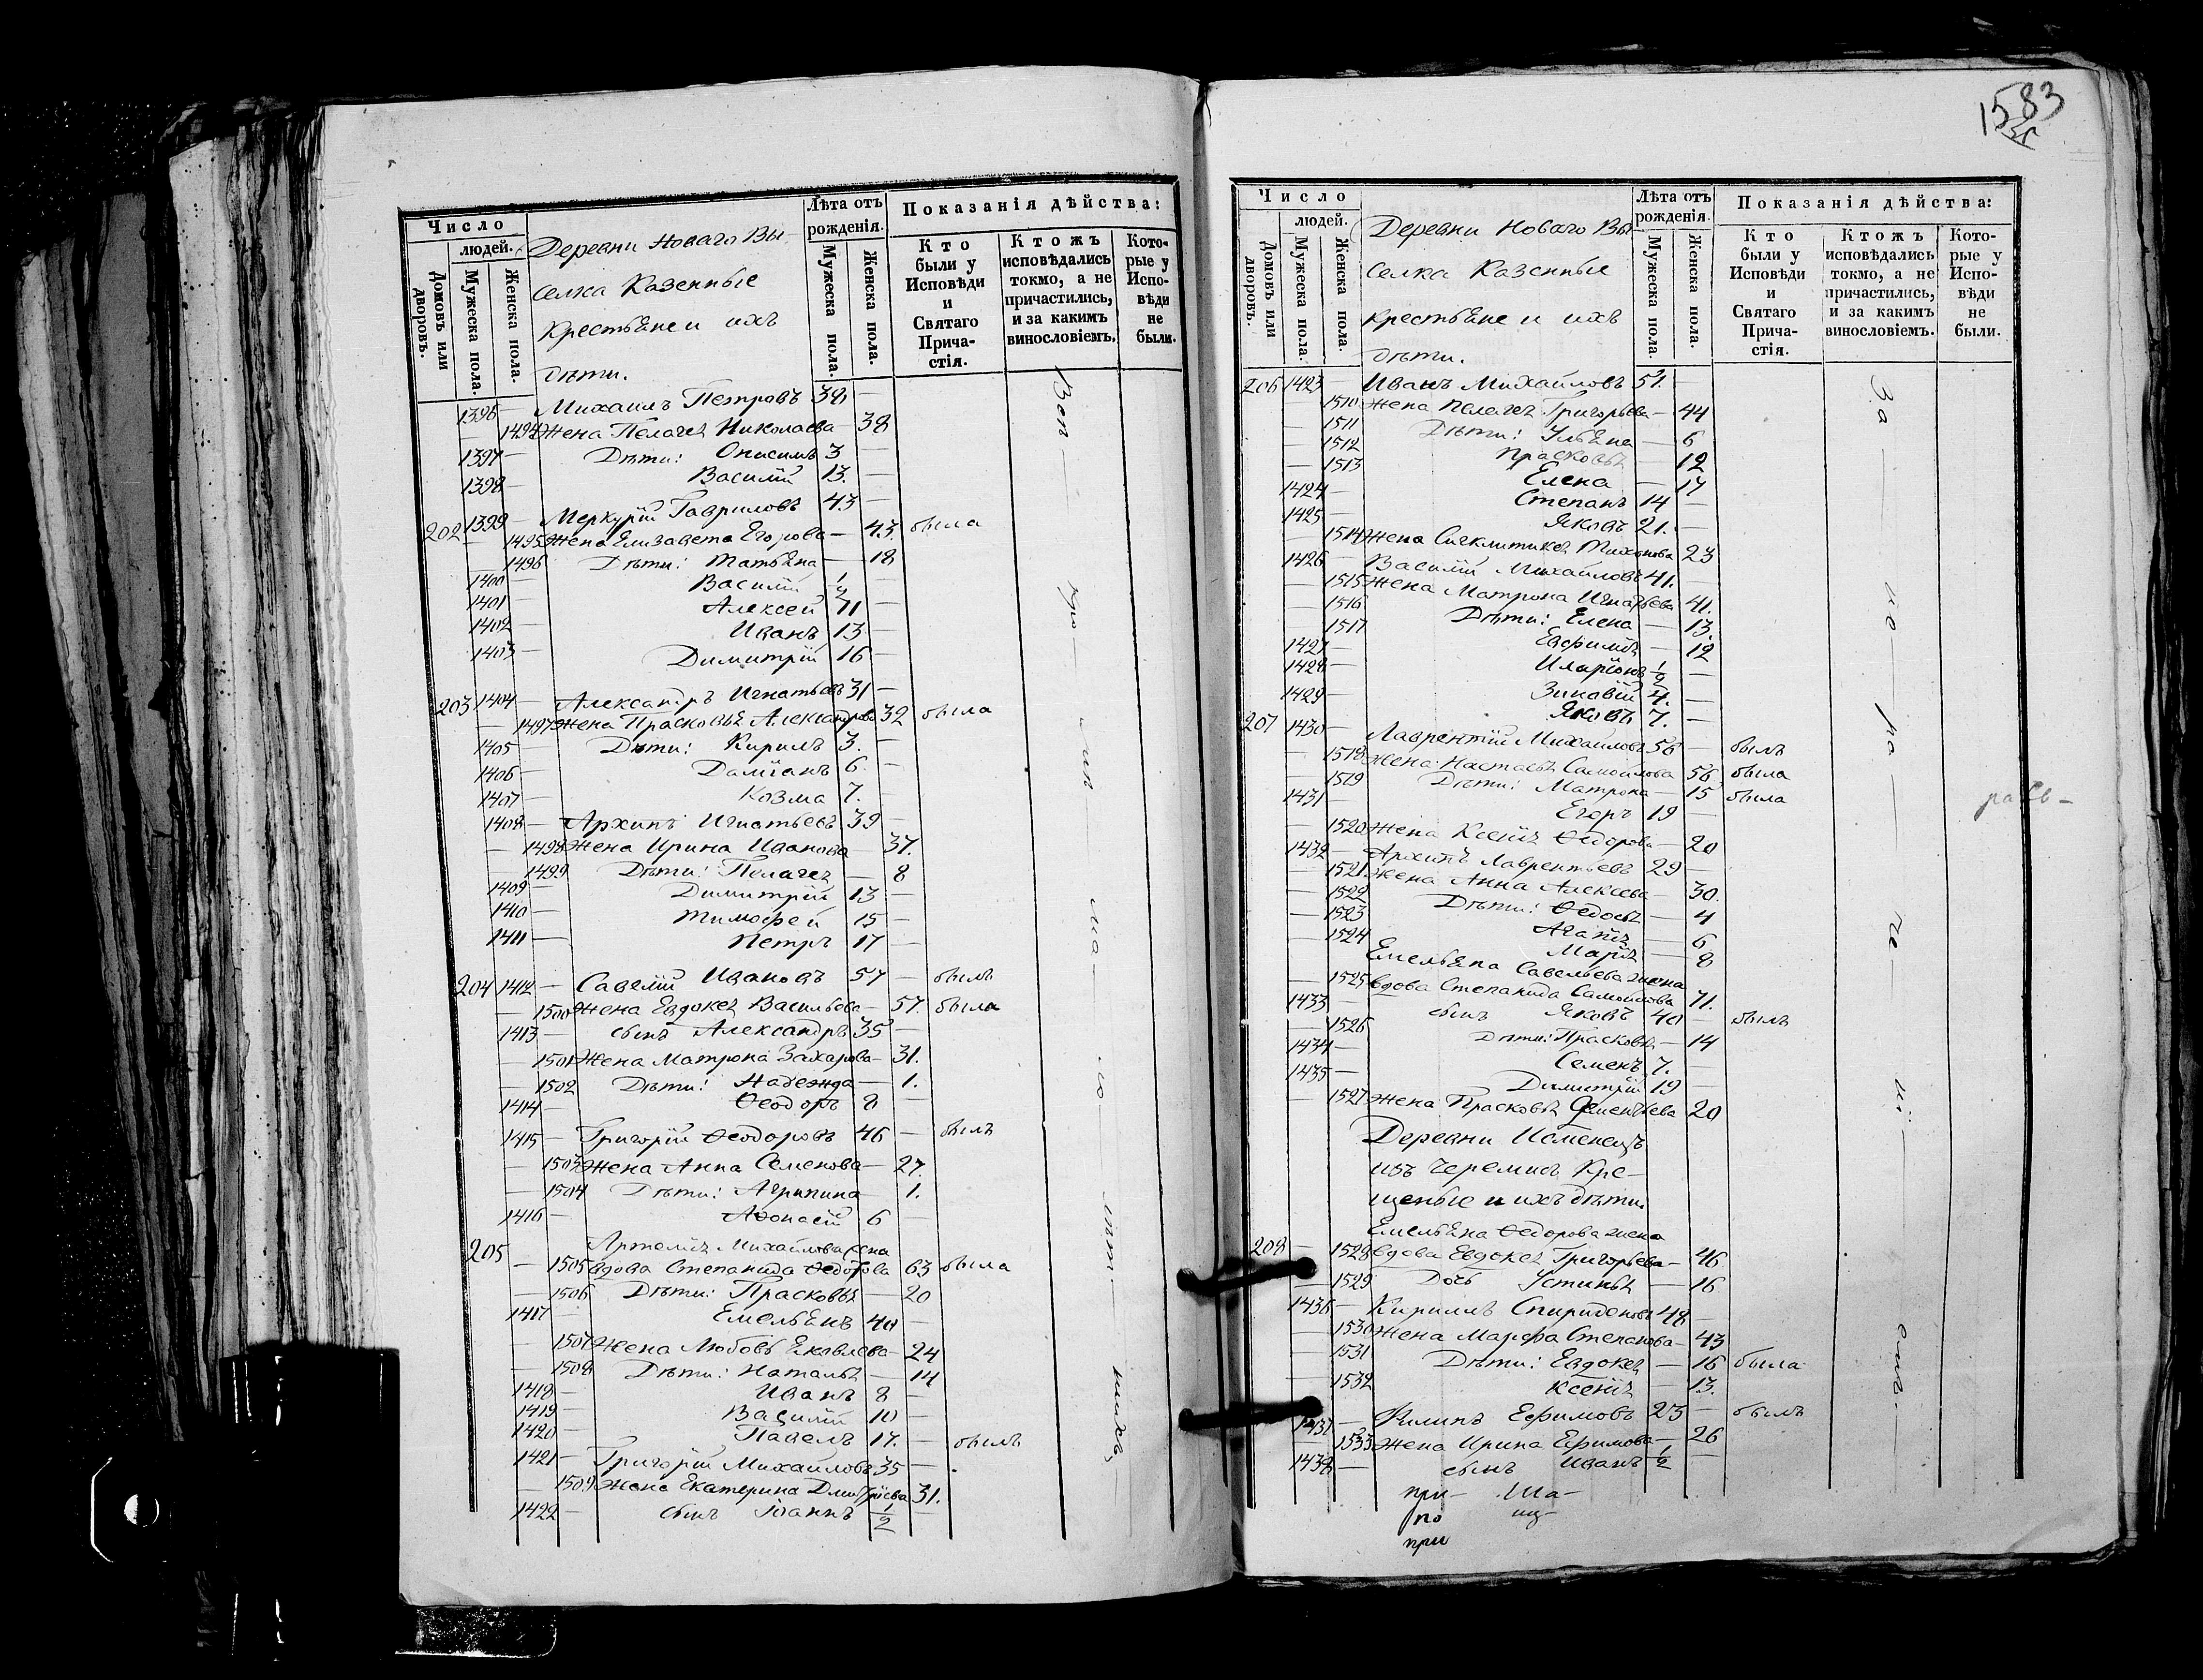 1583
Число
людей.
Домовъ или дворовъ.
Мужеска пола.
Женска пола.
Деревни Новаго Вы-
селка Казенные
крестьяне и ихъ
дѣти.
Лѣта отъ рожденія.
Мужеска пола.
Женска пола.
Показанія дѣйства:
Кто были у Исповѣди и Святаго Прича-стія.
Ктожъ исповѣдались токмо, а не причастились, и за какимъ винословіемъ.
Кото-рые у Испо-вѣди не были.
1396 — Михаилъ Петровъ 38 —
— 1494 Жена Пелагея Николаева — 38
1397 — Дѣти: Онисимъ 3 —
1398 — Василій 13. —
202 1399 — Меркурій Гавриловъ 43 —
— 1495 Жена Елизавета Егорова — 43. была
1496 Дѣти: Татьяна — 18
1400 — Василій 1/2 —
1401 — Алексей 11 —
1402 — Иванъ 13 —
1403 — Димитрій 16 —
203 1404 — Александръ Игнатьевъ 31 —
— 1497 Жена Прасковья Александрова 32 была
1405 — Дѣти: Кирилъ 3. —
1406 — Даміанъ 6. —
1407 — Козма 7. —
1408 — Архипъ Игнатьевъ 39 —
— 1498 Жена Ирина Иванова — 37.
— 1499 Дѣти: Пелагея — 8
1409 — Димитрій 13 —
1410 — Тимофей 15 —
1411 — Петръ 17 —
204 1412 — Савелій Ивановъ 57 — былъ
— 1500 Жена Евдокея Васильева — 57. была
1413 — сынъ Александръ 35 —
— 1501 Жена Матрона Захарова — 31.
— 1502 Дѣти: Надежда — 1.
1414 — Ѳеодоръ 8 —
1415 — Григорій Ѳеодоровъ 46 — былъ
— 1503 Жена Анна Семенова — 27.
— 1504 Дѣти: Агрипина — 1.
1416 — Аѳонасій 6 —
205 Михайлова жена
— 1505 вдова Степанида Ѳедорова 63 была
— 1506 Дѣти: Прасковья — 20
1417 — Емельянъ 40 —
— 1507 Жена Любовь Яковлева — 24
— 1508 Дѣти: Наталья — 14
1418 — Иванъ 8 —
1419 — Василій 10 —
1420 — Павелъ 17. — былъ
1421 — Григорій Михайловъ 35 —
— 1509 Жена Екатерина Дмитріева 31.
1422 — сынъ Іоаннъ 1/2 —
Число
людей.
Домовъ или дворовъ.
Мужеска пола.
Женска пола.
Деревни Новаго Вы
селка Казенные
крестьяне и ихъ
дѣти.
Лѣта отъ рожденія.
Мужеска пола.
Женска пола.
Показанія дѣйства:
Кто были у Исповѣди и Святаго Прича-стія.
Ктожъ исповѣдались токмо, а не причастились, и за какимъ винословіемъ.
Кото-рые у Испо-вѣди не были.
206 1423 — Иванъ Михайловъ 51. —
1510 Жена Пелагея Григорьева — 44
— 1511 Дѣти: Ульяна — 6
— 1512 Прасковья — 12
— 1513 Елена — 17
1424 — Степанъ 14 —
1425 — Яковъ 21. —
— 1514 Жена Сигклитикея Тихонова 23
1426 — Василій Михайловъ 41. —
— 1515 Жена Матрона Игнатьева 41.
— 1516 Дѣти: Елена — 13.
— 1517 Евфимія — 12
1427 — Иларіонъ 1/2 —
1428 — Зиновій 4. —
1429 — Яковъ 7. —
207 1430 — Лаврентій Михайловъ 56 — былъ
— 1518 Жена Настасья Самойлова 56 была
— 1519 Дѣти: Матрона — 15 была
1431 — Егоръ 19 —
— 1520 Жена Ксенія Ѳедорова — 20
1432 — Архипъ Лаврентьевъ 29 —
— 1521 Жена Анна Алексеева — 30.
— 1522 Дѣти: Ѳедосья — 4
— 1523 Агаѳія — 6
— 1524 Марія — 8
Емельяна Савельева жена
— 1525 вдова Степанида Самойлова 71.
1433 — сынъ Яковъ 40 — былъ
— 1526 Дѣти: Прасковья — 14
1434 — Семенъ 7. —
1435 — Димитрій 19 —
— 1527 Жена Прасковья 20
Деревни
изъ Черемисъ Кре-
щеные и ихъ дѣти.
Емельяна Ѳедорова жена
208 — 1528 вдова Евдокея Григорьева — 46
— 1529 Дочь Устинья — 16
1436 — Кириллъ Спиридоновъ 48 —
— 1530 Жена Марфа Степанова — 43
— 1531 Дѣти: Евдокея — 16 была
— 1532 Ксенія — 13.
1437 — Филипъ Ефимовъ 23 — былъ
— 1533 Жена Ирина Ефимова — 26
1438 — сынъ Иванъ 1/2 —
при- Ша-
по
при
За — не — ра — че — ні — емъ.